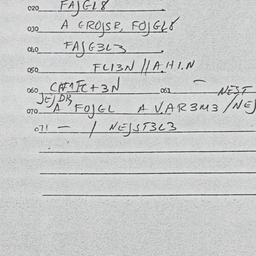 020 FAJGL8
030 A GROJSR, FOJGL8
040 FAJG3L3
050 FL13N // A.H1.N
060 CHFAFC+3N 061 — NEJT
JEJDR
070 A FOJGL A V.AR3M3 /NEJ
071 — / NEJST3L3